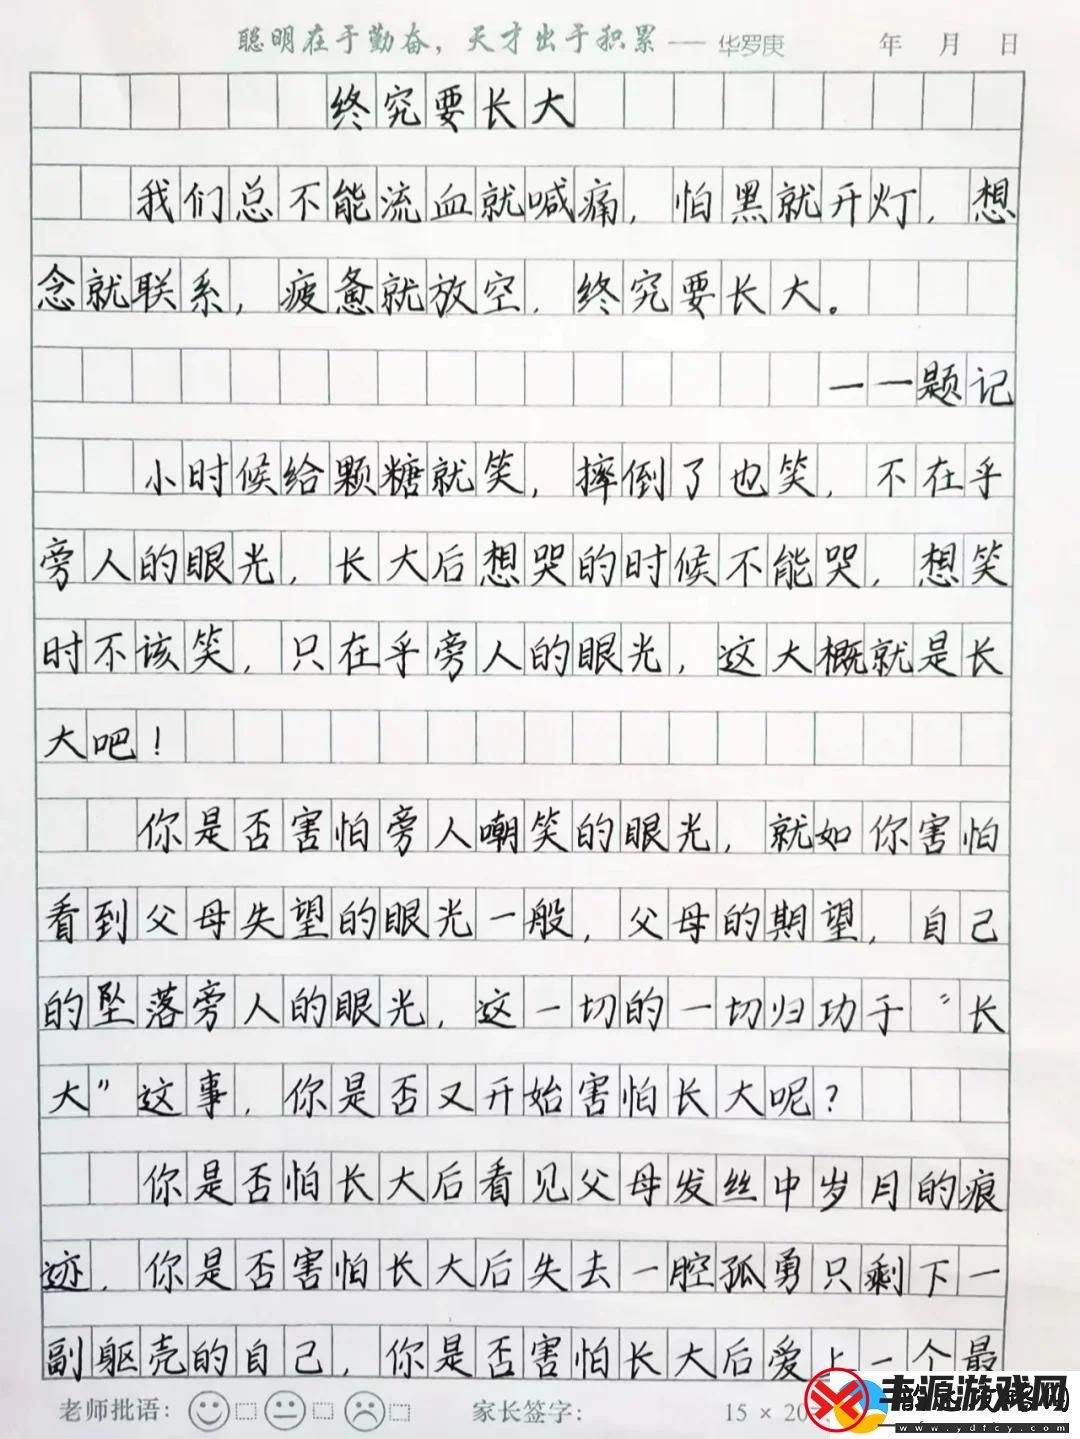 聪明在于勤奋，天才出于积累——华罗庚 年 月 日
终究要长大
我们总不能流血就喊痛，怕黑就开灯，想
念就联系，疲惫就放空，终究要长大。
——题记
小时候给颗糖就笑，摔倒了也笑，不在乎
旁人的眼光，长大后想哭的时候不能哭，想笑
时不该笑，只在乎旁人的眼光，这大概就是长
大吧！
你是否害怕旁人嘲笑的眼光，就如你害怕
看到父母失望的眼光一般，父母的期望，自己
的坠落旁人的眼光，这一切的一切归功于“长
大”这事，你是否又开始害怕长大呢？
你是否怕长大后看见父母发丝中岁月的痕
迹，你是否害怕长大后失去一腔孤勇只剩下一
副躯壳的自己，你是否害怕长大后爱上一个最
老师批语： 家长签字： 15 × 20
丰源游戏网
www.ydfcy.com